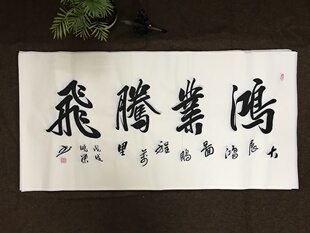 鴻業騰飛
大展鴻圖鵬程萬里
戊戌